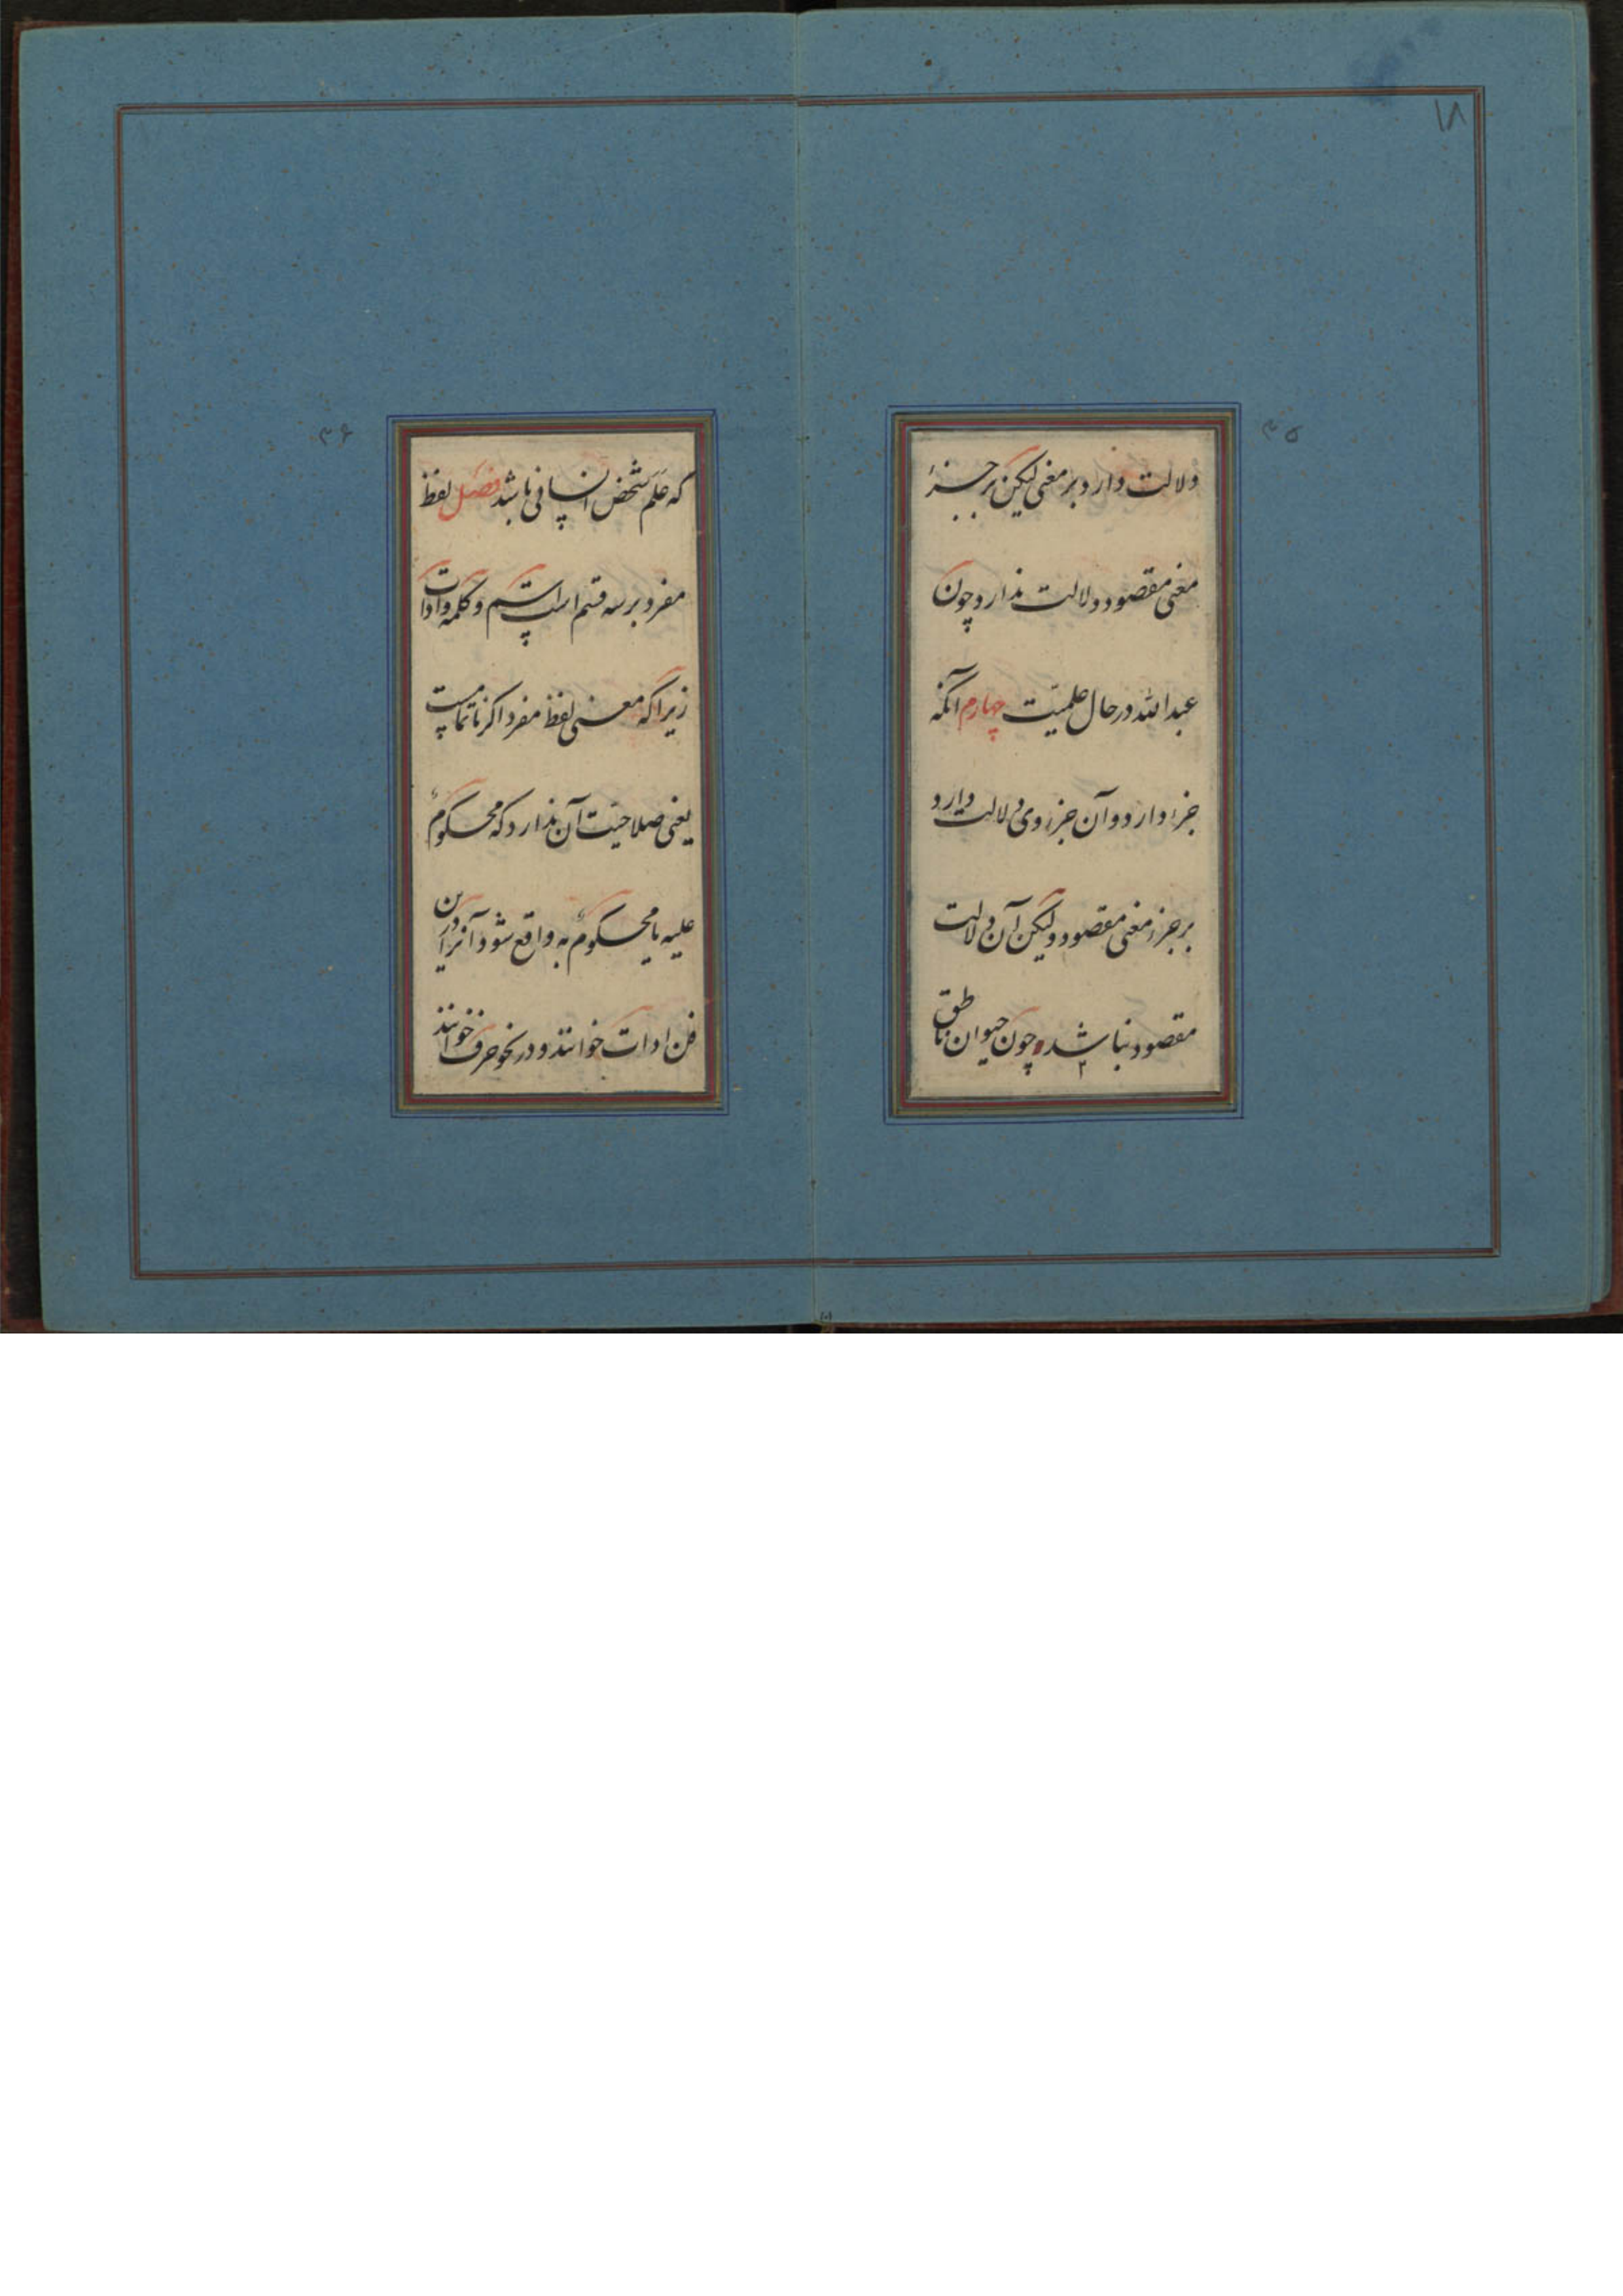 ۱۸
۳۵
دلالت دارد بر معنی لیکن بر جزء
معنی مقصود دلالت ندارد چون
عبدالله در حال علمیّت چهارم آنکه
جزء دارد و آن جزء وی دلالت دارد
بر جزء معنی مقصود و لیکن آن دلالت
مقصود نباشد چون حیوان ناطق
۳۶
که عَلَم شخص انسانی باشد فصل لفظ
مفرد بر سه قسم است اسم و کلمه و ادات
زیرا که معنی لفظ مفرد اگر ناتمامست
یعنی صلاحیّت آن ندارد که محکومٌ
علیه یا محکومٌ به واقع شود آنرا درین
فن ادات خوانند و در نحو حرف خوانند